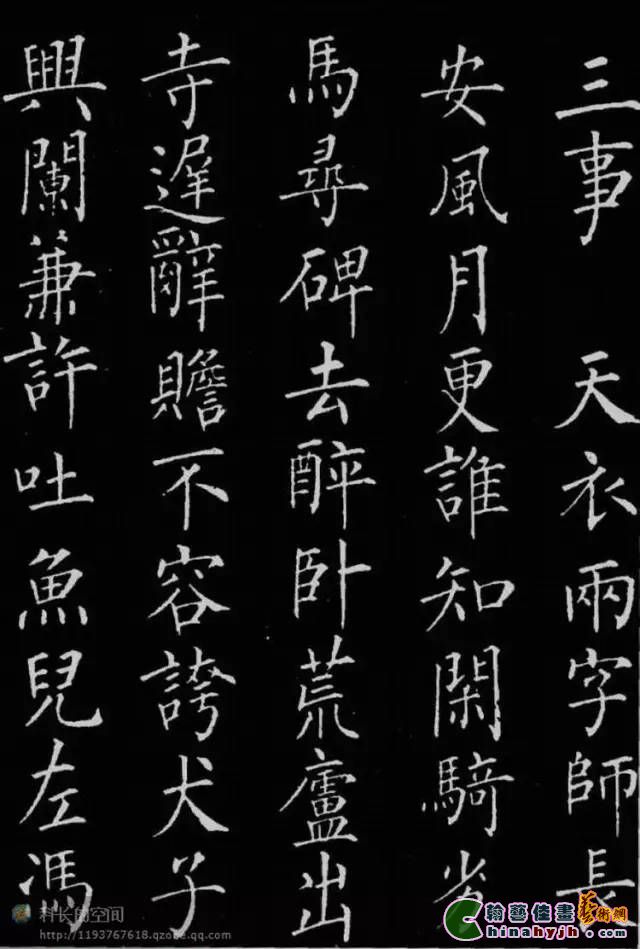 三事 天衣兩字師長
安風月更誰知閑騎省
馬尋碑去醉卧荒廬出
寺遲辭贍不容誇犬子
興闌兼許吐魚兒左馮
科长的空间
http://1193767618.qzone.qq.com
翰藝佳畫藝術網
Chinahyjh.com